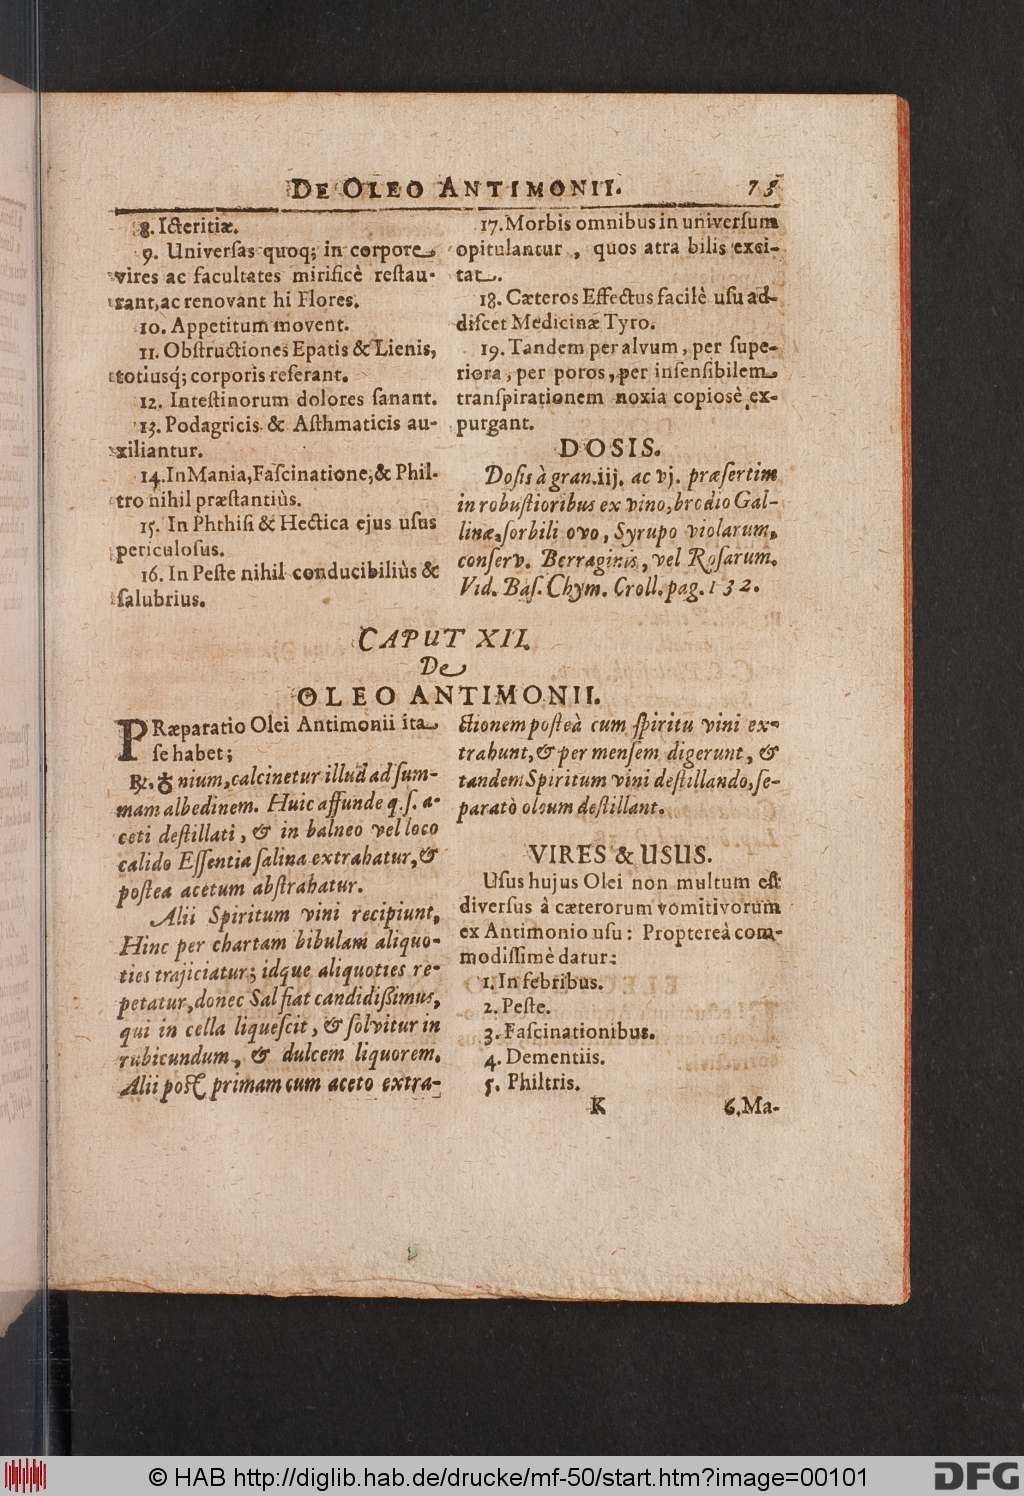 DE OLEO ANTIMONII. 75
8. Icteritiæ.
9. Universas quoq; in corpore
vires ac facultates mirificè restau-
rant, ac renovant hi Flores.
10. Appetitum movent.
11. Obstructiones Epatis & Lienis,
totiusq́; corporis referant.
12. Intestinorum dolores sanant.
13. Podagricis & Asthmaticis au-
xiliantur.
14. In Mania, Fascinatione, & Phil-
tro nihil præstantiùs.
15. In Phthisi & Hectica ejus usus
periculosus.
16. In Peste nihil conducibiliùs &
salubrius.
17. Morbis omnibus in universum
opitulantur, quos atra bilis exci-
tat.
18. Cæteros Effectus facilè usu ad-
discet Medicinæ Tyro.
19. Tandem per alvum, per supe-
riora, per poros, per insensibilem
transpirationem noxia copiosè ex-
purgant.
DOSIS.
Dosis à gran. iij. ac vj. præsertim
in robustioribus ex vino, brodio Gal-
linæ, sorbili ovo, Syrupo violarum,
conserv. Berraginis, vel Rosarum.
Vid. Bas. Chym. Croll. pag. 132.
CAPUT XII.
De
OLEO ANTIMONII.
PRæparatio Olei Antimonii ita
se habet;
℞. ♁ nium, calcinetur illud ad sum-
mam albedinem. Huic affunde q. s. a-
ceti destillati, & in balneo vel loco
calido Essentia salina extrahatur, &
postea acetum abstrahatur.
Alii Spiritum vini recipiunt,
Hinc per chartam bibulam aliquo-
ties trajiciatur; idque aliquoties re-
petatur, donec Sal fiat candidissimus,
qui in cella liquescit, & solvitur in
rubicundum, & dulcem liquorem.
Alii post primam cum aceto extra-
ctionem posteà cum spiritu vini ex-
trahunt, & per mensem digerunt, &
tandem Spiritum vini destillando, se-
paratò oleum destillant.
VIRES & USUS.
Usus hujus Olei non multum est
diversus à cæterorum vomitivorum
ex Antimonio usu: Proptereà com-
modissimè datur:
1. In febribus.
2. Peste.
3. Fascinationibus.
4. Dementiis.
5. Philtris.
K 6. Ma-
© HAB http://diglib.hab.de/drucke/mf-50/start.htm?image=00101
DFG